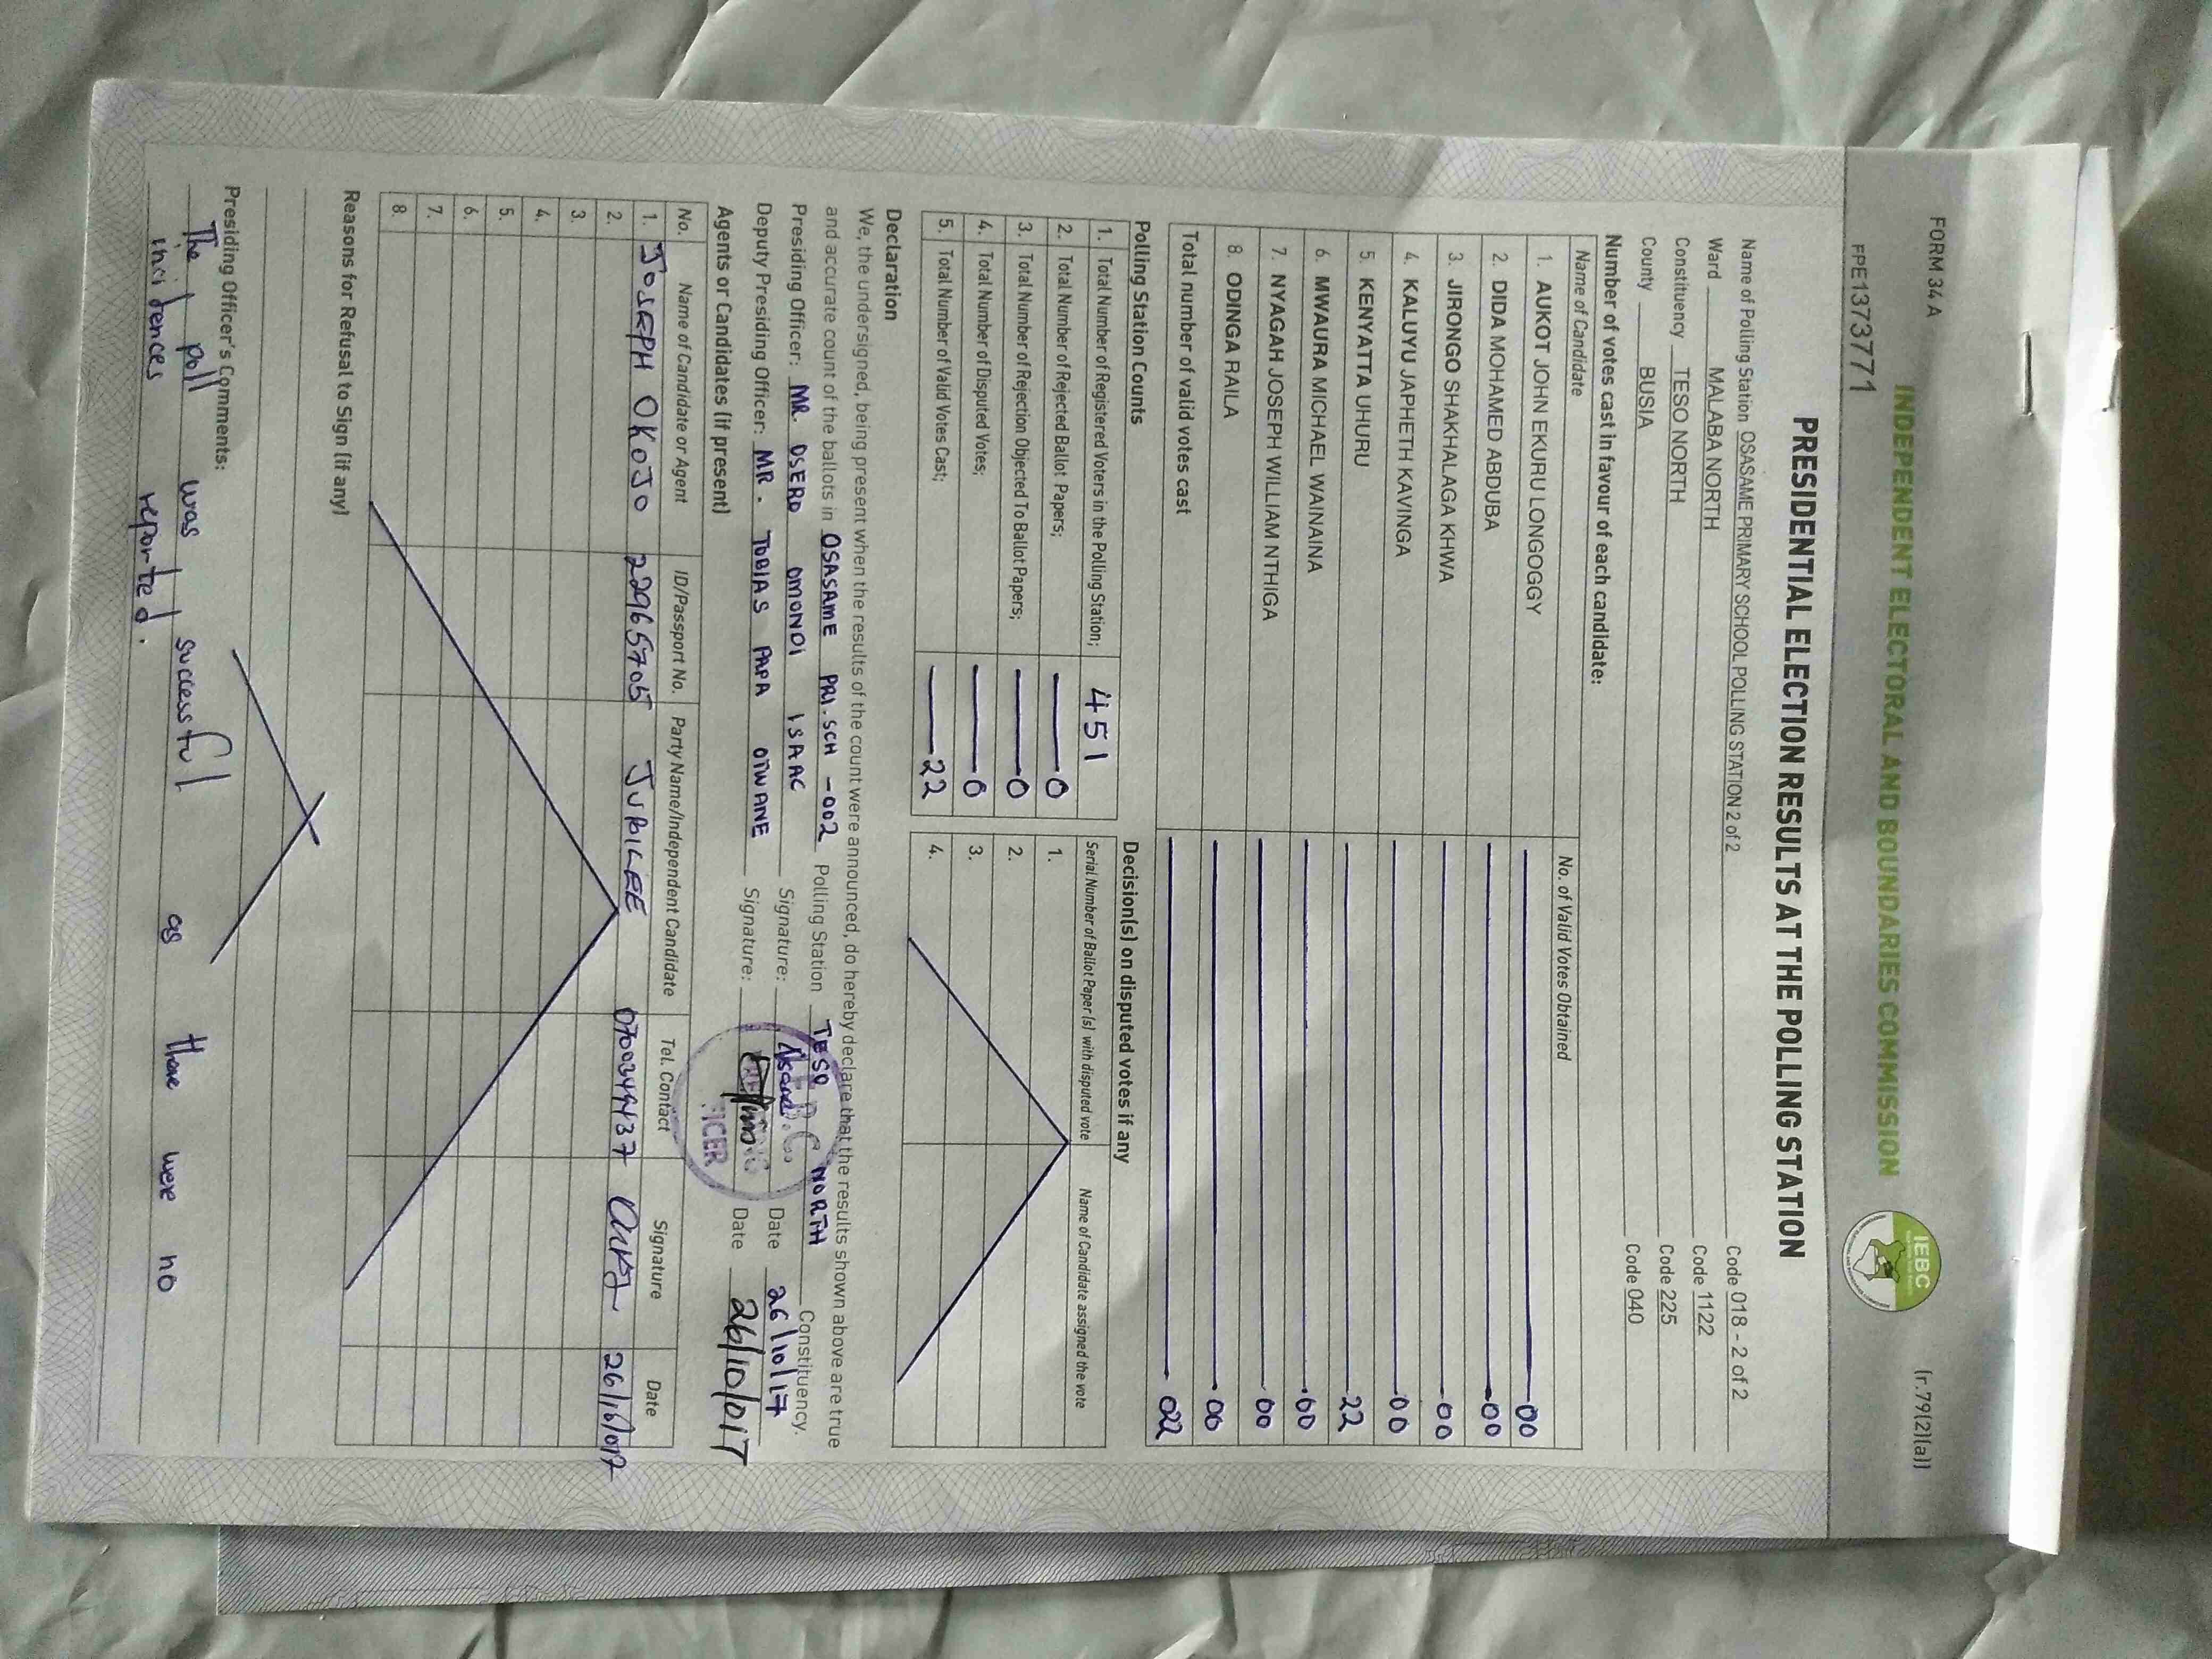 FORM 34 A
(r.79(2)(a))
INDEPENDENT ELECTORAL AND BOUNDARIES COMMISSION
IEBC
FPE1373771
PRESIDENTIAL ELECTION RESULTS AT THE POLLING STATION
Name of Polling Station OSASAME PRIMARY SCHOOL POLLING STATION 2 of 2 Code 018 - 2 of 2
Ward MALABA NORTH Code 1122
Constituency TESO NORTH Code 225
County BUSIA Code 040
Number of votes cast in favour of each candidate:
Name of Candidate No. of Valid Votes Obtained
1. AUKOT JOHN EKURU LONGOGGY 00
2. DIDA MOHAMED ABDUBA 00
3. JIRONGO SHAKHALAGA KHWA 00
4. KALUYU JAPHETH KAVINGA 00
5. KENYATTA UHURU 22
6. MWAURA MICHAEL WAINAINA 00
7. NYAGAH JOSEPH WILLIAM NTHIGA 00
8. ODINGA RAILA 00
Total number of valid votes cast 022
Polling Station Counts
1. Total Number of Registered Voters in the Polling Station; 451
2. Total Number of Rejected Ballot Papers; 0
3. Total Number of Rejection Objected To Ballot Papers; 0
4. Total Number of Disputed Votes; 0
5. Total Number of Valid Votes Cast; 22
Decision(s) on disputed votes if any
Serial Number of Ballot Paper(s) with disputed vote Name of Candidate assigned the vote
1.
2.
3.
4.
Declaration
We, the undersigned, being present when the results of the count were announced, do hereby declare that the results shown above are true
and accurate count of the ballots in OSASAME PRI. SCH - 002 Polling Station TESO NORTH Constituency.
Presiding Officer: MR. OSERO OMONDI ISAAC Signature: Date 26/10/17
Deputy Presiding Officer: MR. TOBIAS PAPA OTWANE Signature: Date 26/10/017
Agents or Candidates (if present)
No. Name of Candidate or Agent ID/Passport No. Party Name/Independent Candidate Tel. Contact Signature Date
1. JOSEPH OKOJO 22965705 JUBILEE 0700349437 26/10/017
2.
3.
4.
5.
6.
7.
8.
Reasons for Refusal to Sign (if any)
Presiding Officer's Comments:
The poll was successful as there were no
incidences reported.